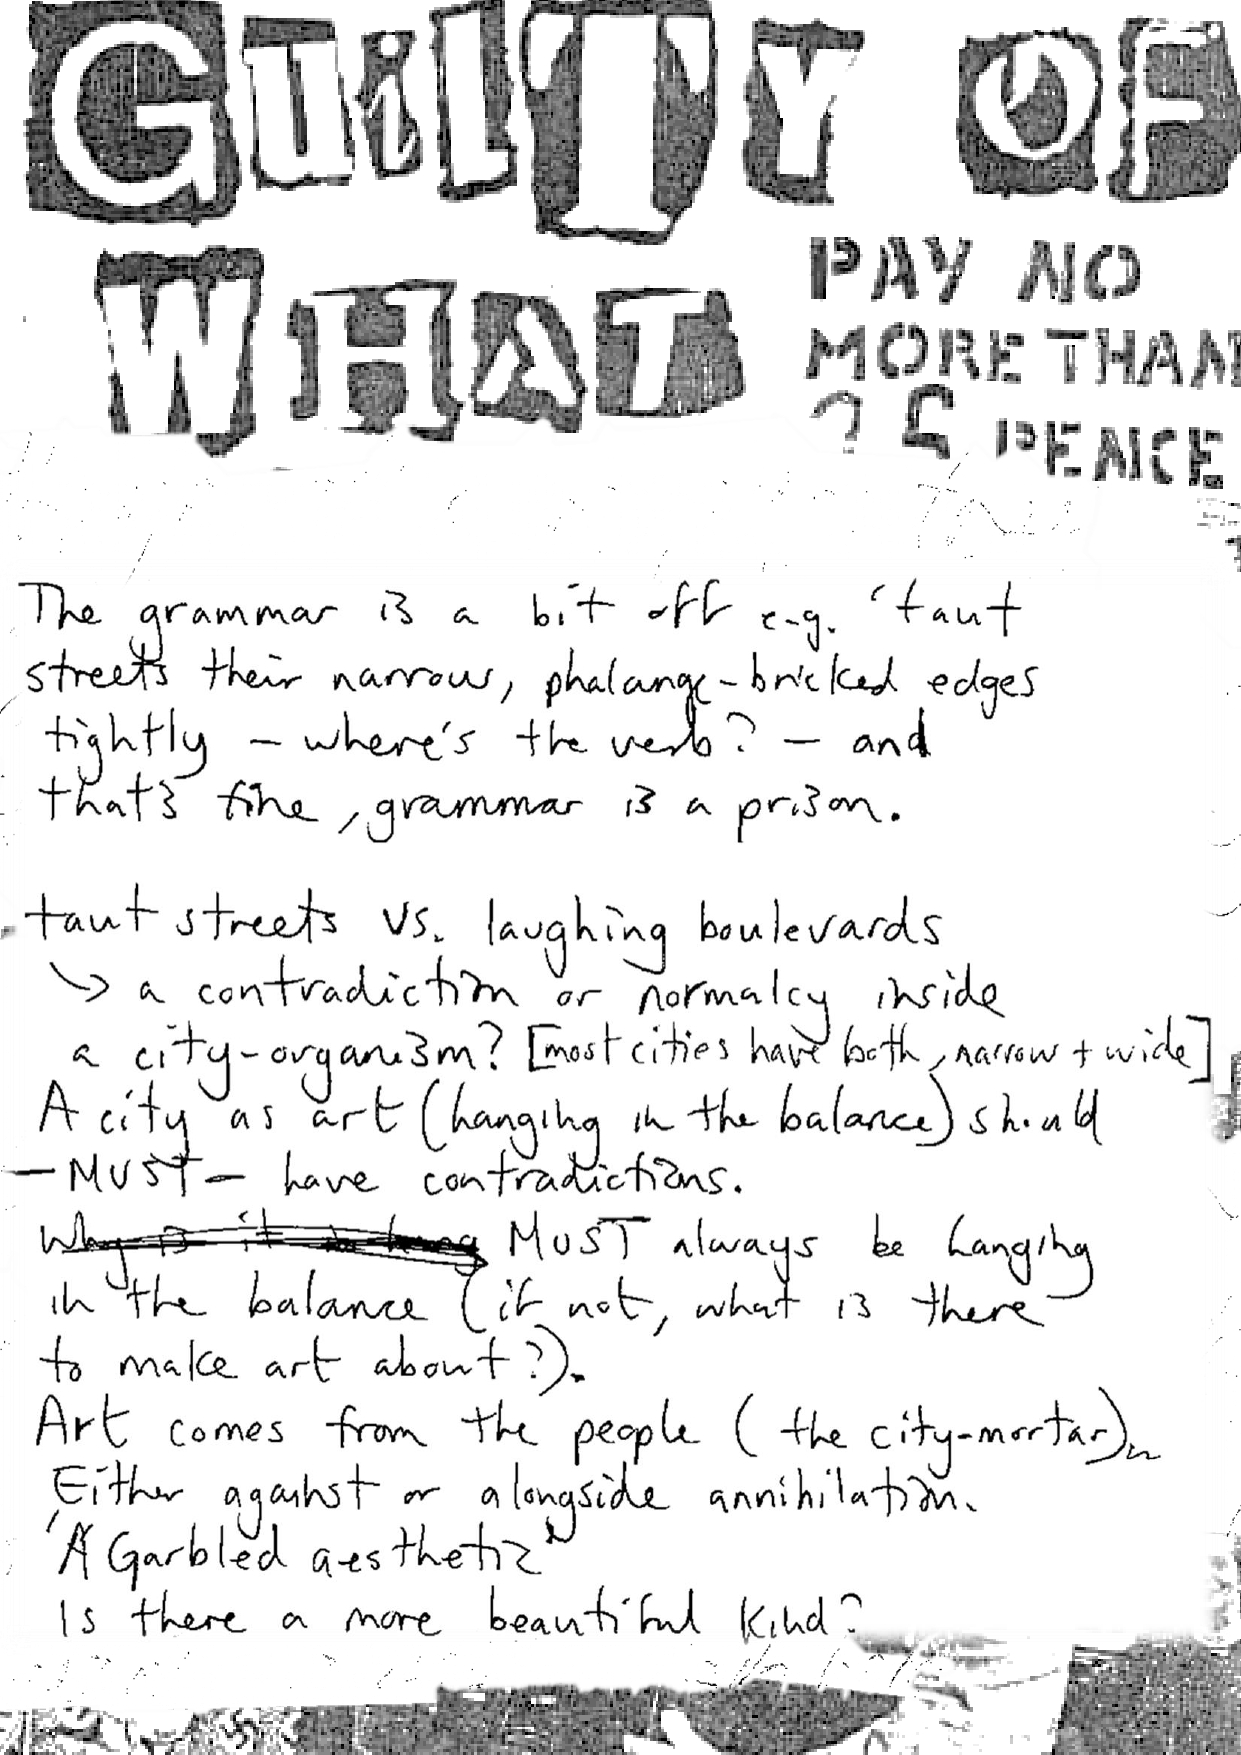 GuilTY OF
WHAT
PAY NO
MORE THAN
25 PENCE
The grammar is a bit off e.g. 'taut
streets their narrow, phalange-bricked edges
tightly – where's the verb? – and
that's fine, grammar is a prison.
taut streets vs. laughing boulevards
↳ a contradiction or normalcy inside
a city-organism? [most cities have both, narrow + wide]
A city as art (hanging in the balance) should
– MUST – have contradictions.
MUST always be hanging
in the balance (if not, what is there
to make art about?).
Art comes from the people (the city-mortar)
Either against or alongside annihilation.
"A Garbled aesthetic"
Is there a more beautiful kind?